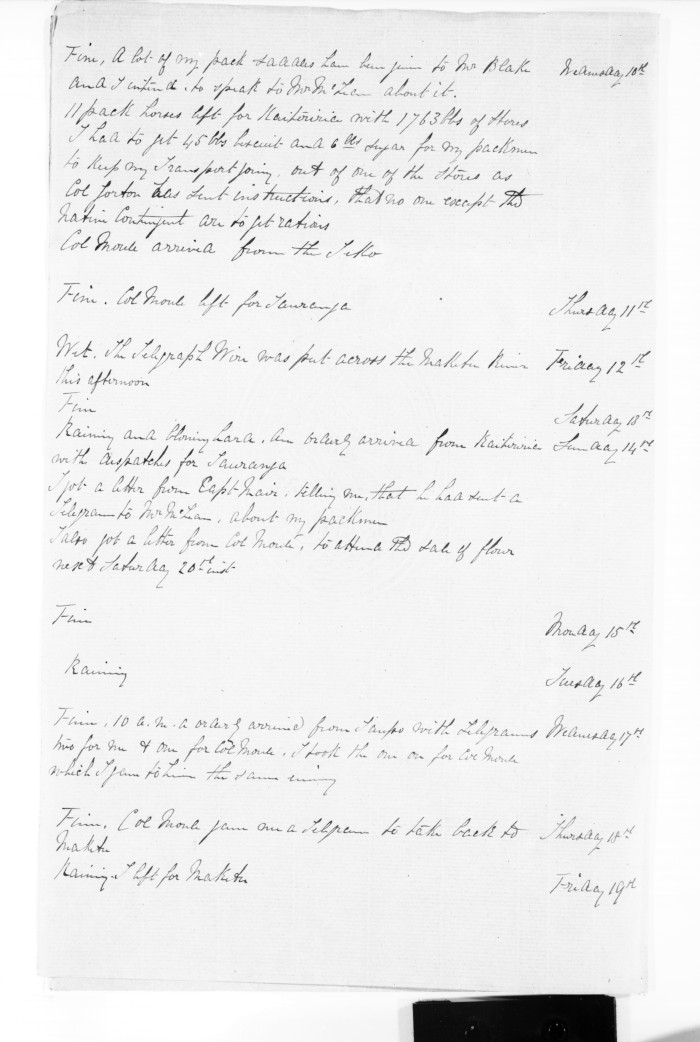 Fine, A lot of my pack saddles have been given to Mr Blake Wednesday 10th
and I intend to speak to Mr McLean about it.
11 pack horses left for Kaiteriria with 1763 lbs of Stores
I had to get 45 lbs biscuit and 6 lbs sugar for my packmen
to keep my Transport going, out of one of the Stores as
Col Gorton has sent instructions, that no one except the
Native Contingent are to get rations
Col Moule arrived from the Teko
Fine. Col Moule left for Tauranga Thursday 11th
Wet. The Telegraph Wire was put across the Maketu River Friday 12th
this afternoon
Fine Saturday 13th
Raining and blowing hard. An orderly arrived from Kaiteriria Sunday 14th
with dispatches for Tauranga
I got a letter from Capt Mair, telling me, that he had sent a
Telegram to Mr McLean, about my packmen
I also got a letter from Col Moule, to attend the sale of flour
next Saturday 20th inst
Fine Monday 15th
Raining Tuesday 16th
Fine, 10 a.m. a orderly arrived from Taupo with Telegrams Wednesday 17th
two for me & one for Col Moule. I took the one on for Col Moule
which I gave to him the same evening
Fine. Col Moule gave me a Telegram to take back to Thursday 18th
Maketu
Raining I left for Maketu Friday 19th